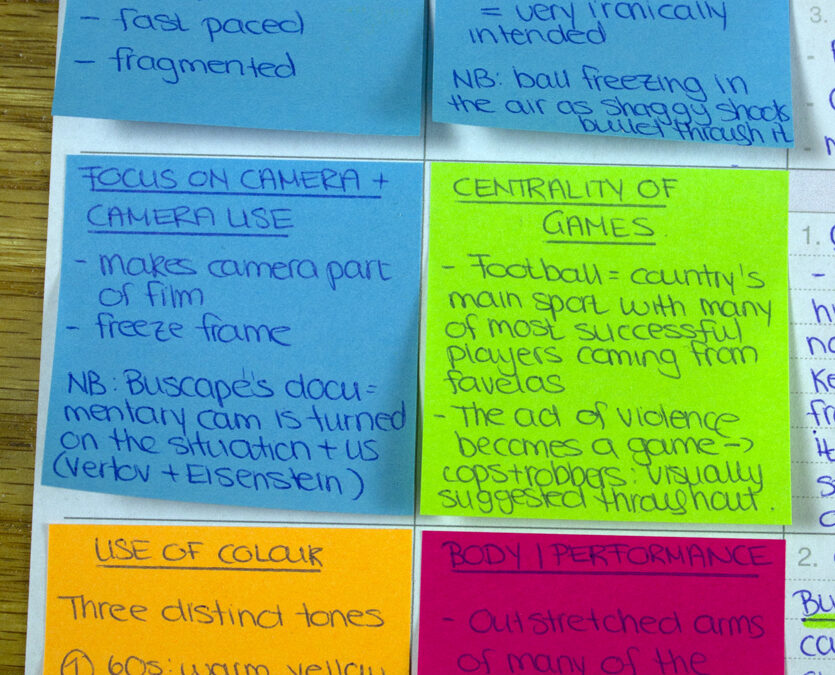 - fast paced
- fragmented
= very ironically
intended
NB: ball freezing in
the air as shaggy shoots
bullet through it
FOCUS ON CAMERA +
CAMERA USE
- makes camera part
of film
- freeze frame
NB: Buscapé's docu=
mentary cam is turned
on the situation + us
(Vertov + Eisenstein)
CENTRALITY OF
GAMES
- Football = country's
main sport with many
of most successful
players coming from
favelas
- The act of violence
becomes a game ->
cops+robbers: visually
suggested throughout.
USE OF COLOUR
Three distinct tones
① 60s: warm yellow
BODY / PERFORMANCE
- Outstretched arms
of many of the
3.
1.
2.